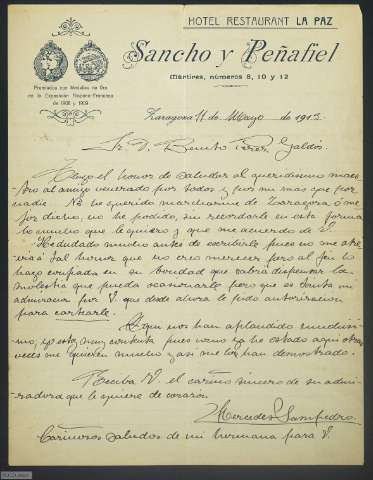 HOTEL RESTAURANT LA PAZ
Sancho y Peñafiel
Mártires, números 8, 10 y 12
Premiados con Medallas de Oro
en la Exposición Hispano-Francesa
de 1908 y 1909
Zaragoza 11 de Mayo de 1913
Sr. D. Benito Pérez Galdós
Tengo el honor de saludar al queridisimo maes-
tro al amigo venerado por todos y por mi mas que por
nadie. No he querido marcharme de Zaragoza ó me
jor dicho, no he podido, sin recordarle en esta forma
lo mucho que le quiero y que me acuerdo de V.
He dudado mucho antes de escribirle pues no me atre
via á tal honor que no creo merecer pero al fin lo
hago confiada en su bondad que sabrá dispensar la
molestia que pueda ocasionarle pero que es tanta mi
admiracion por V. que desde ahora le pido autorizacion
para cartearle.
Aqui nos han aplaudido muchisi-
mo, yo estoy muy contenta pues como ya he estado aqui otras
veces me quieren mucho y asi me lo han demostrado.
Reciba V. el cariño sincero de su admi-
radora que le quiere de corazon
Mercedes Sampedro
Cariñosos saludos de mi hermana para V.